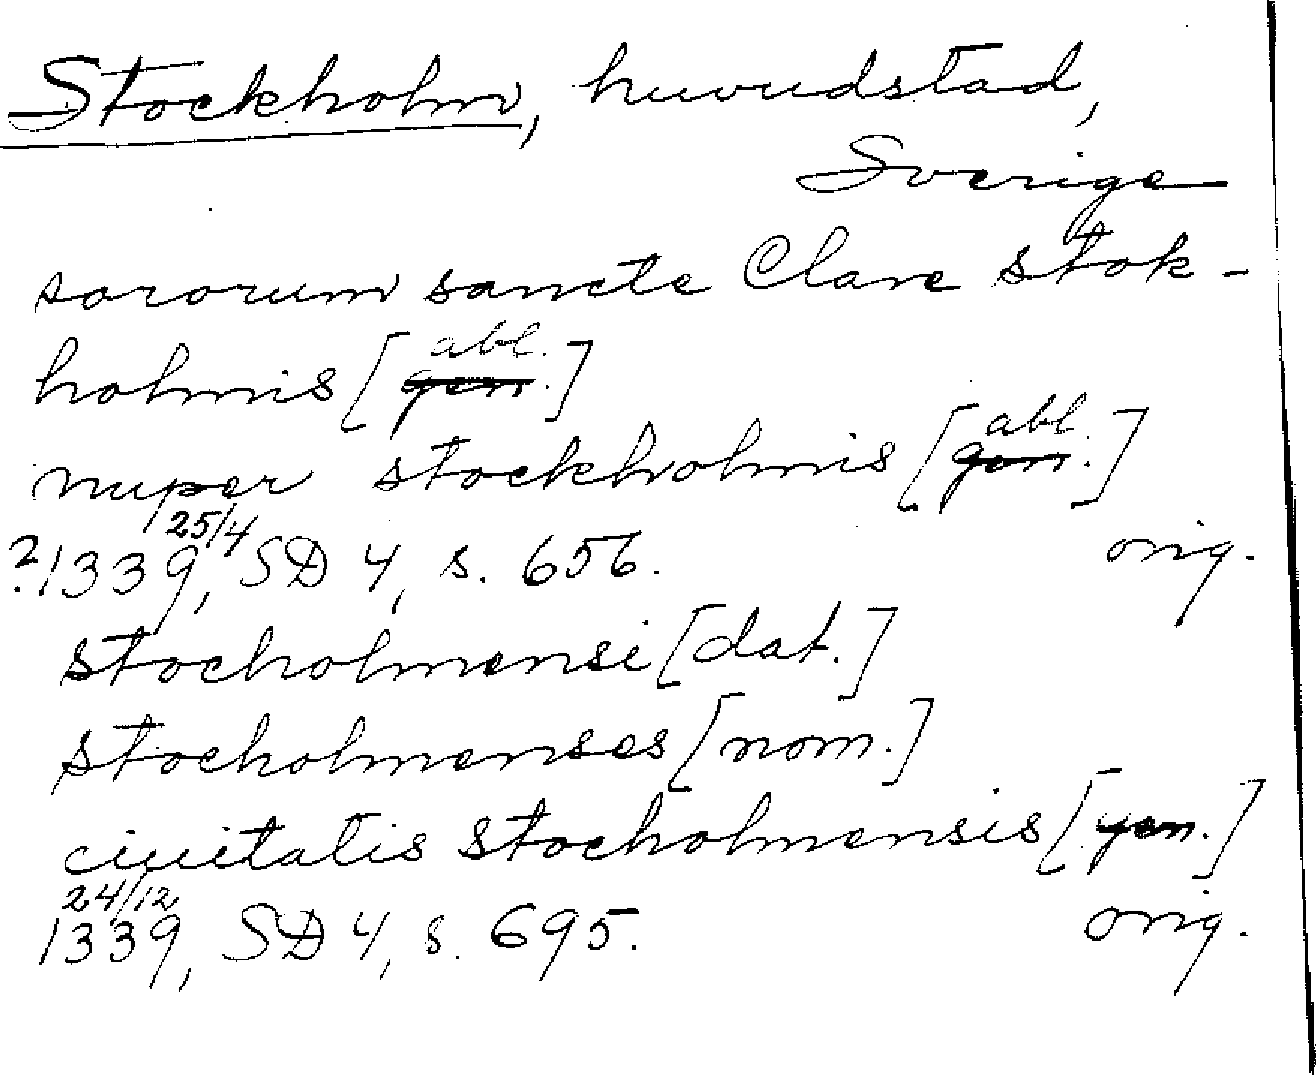 Stockholm, huvudstad,
Sverige
sororum sancte Clare stok-
holmis [gen. abl.]
nuper stockholmis [gen. abl.]
?1339, 25/4 SD 4, s. 656. orig.
stocholmensi [dat.]
stocholmenses [nom.]
ciuitatis stocholmensis [gen.]
24/12
1339, SD 4, s. 695. orig.